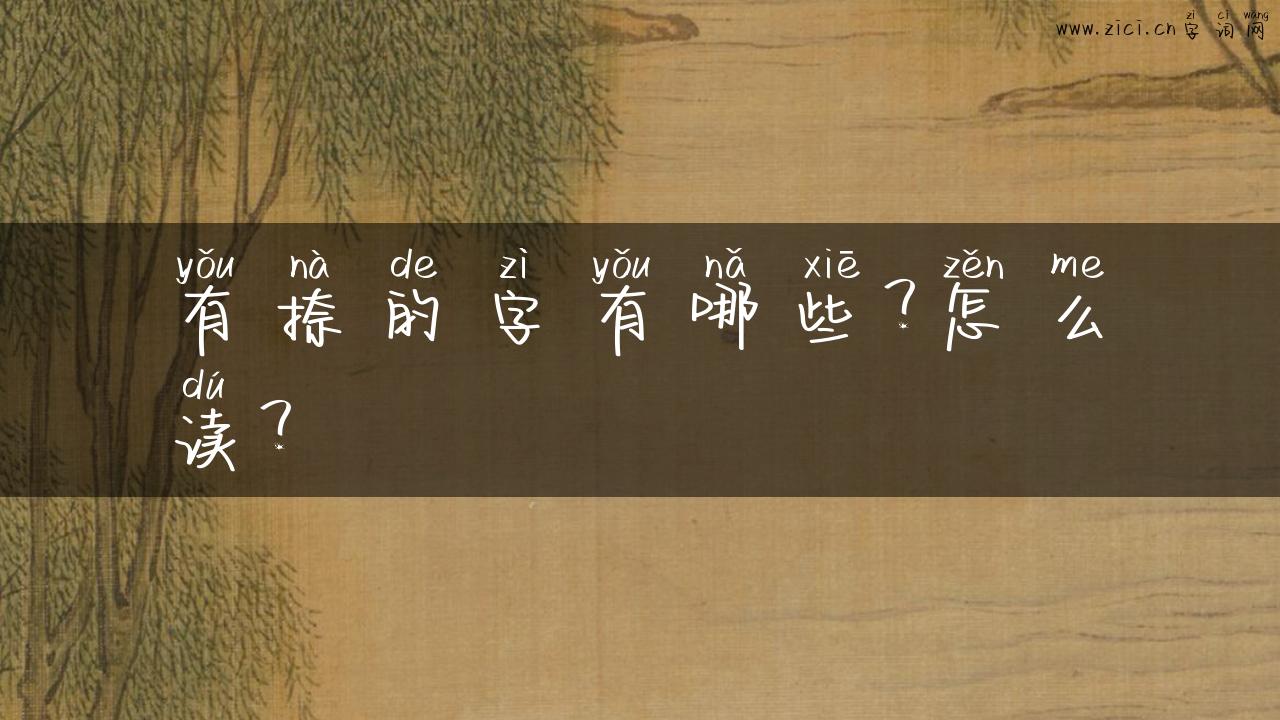 www.zici.cn zì cí wǎng
字词网
yǒu nà de zì yǒu nǎ xiē zěn me
有捺的字有哪些？怎么
dú
读？